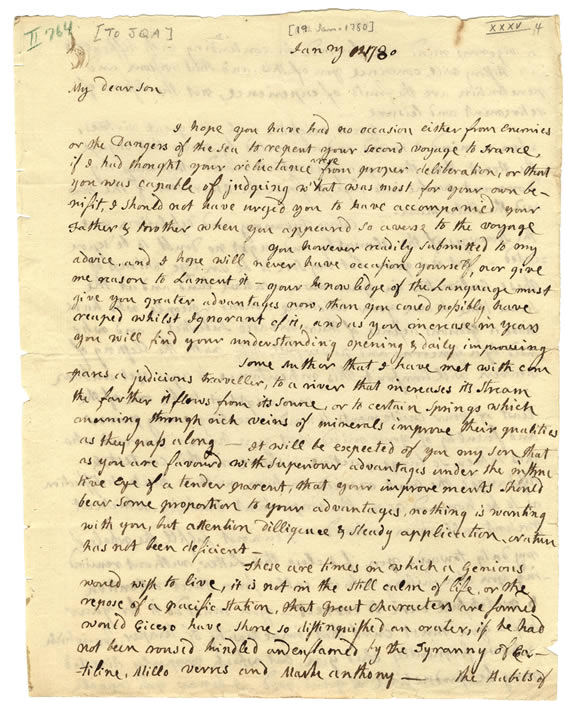 II 764 [TO JQA] [19 Jan. 1780] XXXV 14
Janry 1780
My dear son
I hope you have had no occasion either from Enemies
or the Dangers of the Sea to repent your second voyage to France,
if I had thought your reluctance arose from proper deliberation, or that
you was capable of judging what was most for your own be-
nifit, I should not have urged you to have accompanied your
Father & Brother when you appeared so averse to the voyage
You however readily submitted to my
advice, and I hope will never have occasion yourself, nor give
me reason to Lament it — your knowledge of the Language must
give you greater advantages now, than you could possibly have
reaped whilst Ignorant of it, and as you increase in years
you will find your understanding opening & daily improveing
Some Author that I have met with com
pares a judicious traveller, to a river that increases its Stream
the farther it flows from its source, or to certain Springs which
running through rich veins of minerals improve their qualities
as they pass along — It will be expected of you my son that
as you are favourd with superiour advantages under the instruc
tive Eye of a tender parent, that your improvements should
bear some proportion to your advantages, nothing is wanting
with you, but attention Dilligence & steady application, Nature
has not been deficient —
These are times in which a Genious
would wish to live, it is not in the still calm of life, or the
repose of a pacific Station, that great characters are formed
would Cicero have shone so distinguished an orater, if he had
not been roused kindled and enflamed by the Tyranny of Ca-
tiline, Millo verres and Mark anthony — The Habits of